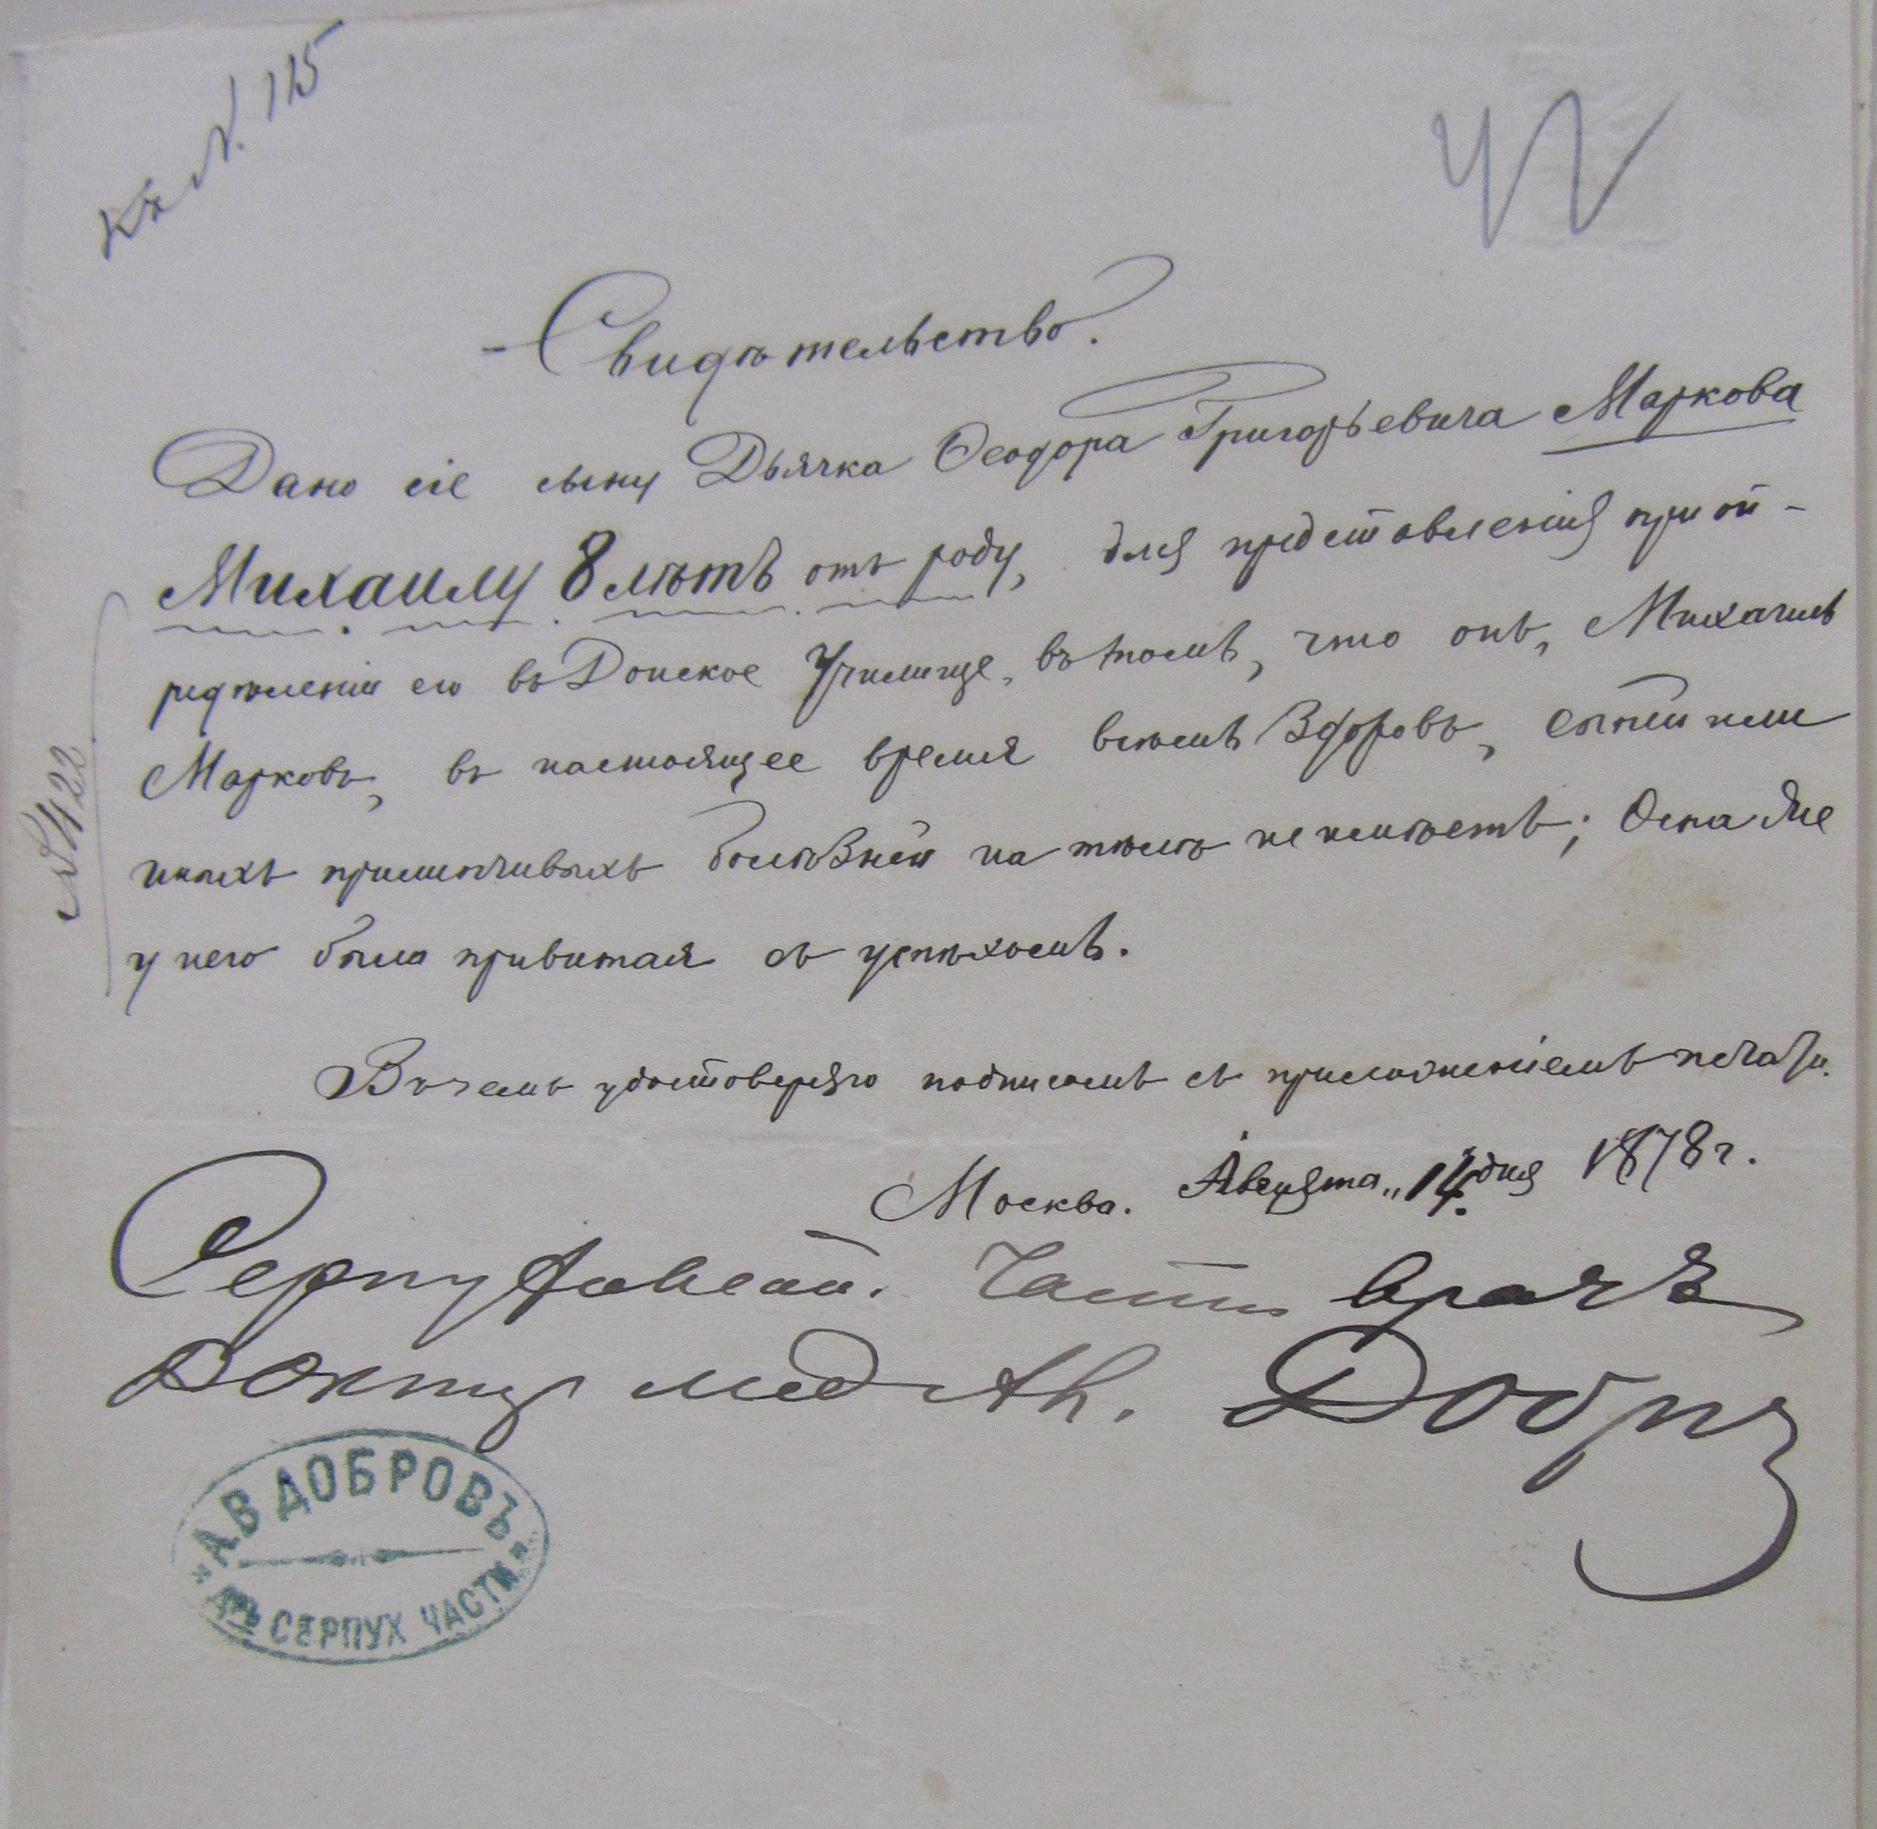 Къ №. 115
42
Свидѣтельство.
Дано сіе сыну Дьячка Ѳеодора Григорьевича Маркова
Михаилу 8 лѣтъ отъ роду, для представленія при оп-
редѣленіи его въ Донское Училище, въ томъ, что онъ, Михаилъ
Марковъ, въ настоящее время всѣмъ здоровъ, сыпи или
иныхъ прилипчивыхъ болѣзней на тѣлѣ не имѣетъ; Оспа же
у него была привитая съ успѣхомъ.
В чемъ удостоверяю подписомъ съ приложеніемъ печати.
Москва. Августа „14 дня 1878 г.
Серпуховской. Части врачъ
Докторъ мед Ал. Добровъ
№ 422
А.В ДОБРОВЪ
ДРЪ СЕРПУХ ЧАСТИ